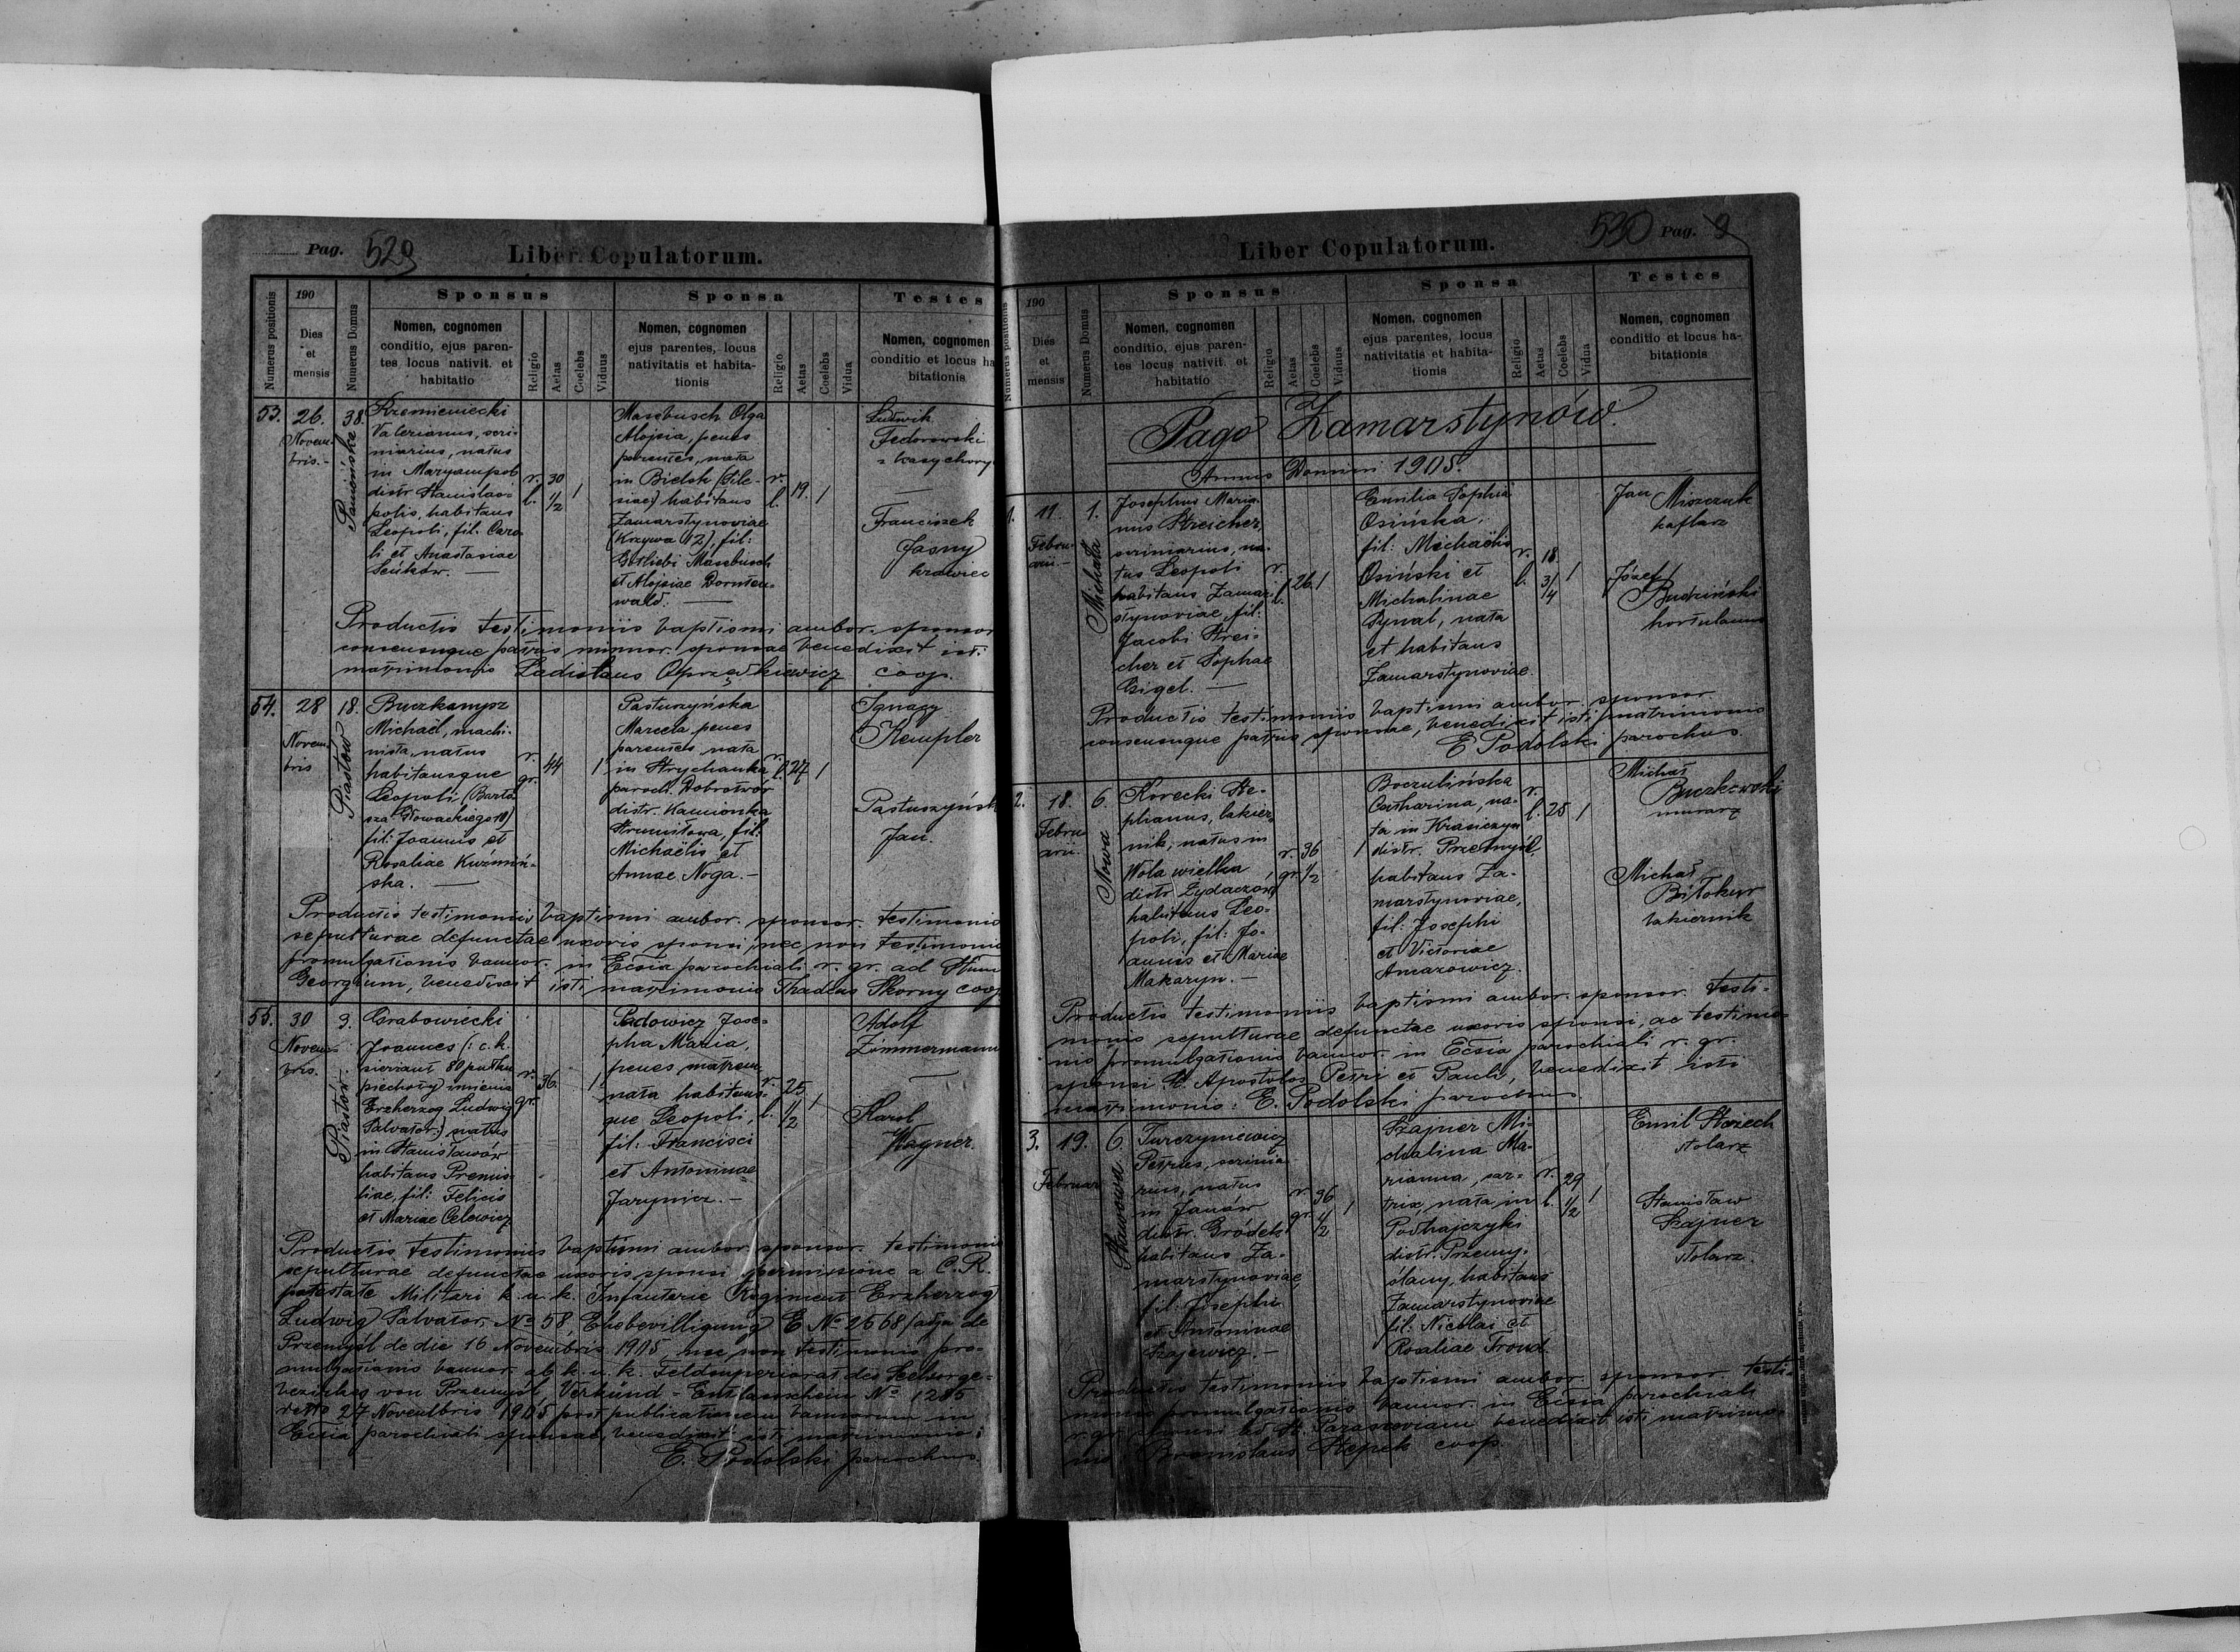 Pag. 529
Liber Copulatorum.
Numerus positionis
190
Dies
et
mensis
Numerus Domus
Sponsus
Nomen, cognomen
conditio, ejus paren-
tes locus nativit. et
habitatio
Religio
Aetas
Coelebs
Viduus
Sponsa
Nomen, cognomen
ejus parentes, locus
nativitatis et habita-
tionis
Religio
Aetas
Coelebs
Vidua
Testes
Nomen, cognomen
conditio et locus ha
bitationis
53.
26.
Novem-
bris.-
38.
Krzemieniecki
Valerianus, scri-
niarius, natus
in Maryampol
distr. Stanislao-
polis, habitans
Leopoli, fil. Caro-
li et Anastasiae
Seńków. —
r.
l.
30
1/2
1
Masebusch Olga
Alojsia, penes
parentes, nata
in Bielsk (Sile-
siae) habitans
Zamarstynoviae
(Krzywa 12), fil:
Gotliebi Masebusch
et Alojsiae Dornten-
wald. —
r.
l.
19.
1
Ludwik
Fedorowski
Franciszek
Jasny
krawiec
Productis testimoniis baptismi ambor. sponsor
consensuque patris minor. sponsae benedixit isti
matrimonio Ladislaus Oprzędkiewicz coop.
54.
28
Novem
bris
18.
Piastów
Buczkampz
Michaël, machi-
nista, natus
habitansque
Leopoli, (Barto
sza Głowackiego 18)
fil: Joannis et
Rosaliae Kuźmiń-
ska. —
r.
gr.
44
1
Pastuszyńska
Marcela penes
parentes, nata
in Strychanka
paroch. Dobrotwór
distr. Kamionka
Strumiłowa, fil:
Michaëlis et
Annae Noga. -
r.
l.
27
1
Ignacy
Kempler
Pastuszyńsk
Jan.
Productis testimoniis baptismi ambor. sponsor. testimonio
sepulturae defunctae uxoris sponsi, nec non testimonio
promulgationis bannor. in Ecsia parochiali r. gr. ad
Georgium, benedixit isti matrimonio Thadeus Skorny coop.
55.
30
Novem-
bris.
3.
Piastów.
Grabowiecki
Joannes (: c. k.
sierżant 80 pułku
piechoty imienia
Erzherzog Ludwig
Salvator:) natus
in Stanisławów
habitans Premis-
liae, fil: Felicis
et Mariae Celewicz
r.
gr.
36.
1
Sadowicz Jose-
pha Maria,
penes matrem,
nata habitans-
que Leopoli,
fil: Francisci
et Antoninae
Jarynicz. -
r.
l.
25
1/2
1
Adolf
Zimmermann
—
Karol
Wagner.
Productis testimoniis baptismi ambor. sponsor. testimonio
sepulturae defunctae uxoris sponsi, permissione a C. R.
potestate Militari k. u. k. Infanterie Regiment Erzherzog
Ludwig Salvator No 58, Ehebewilligung E No 2568/adja de
Przemyśl de die 16 Novembris 1905, nec non testimonio pro-
mulgationis bannor. ab k. u. k. Feldsuperiorat des Seelsorge-
bezirkes von Przemyśl, Verkünd-Entlasschein No 1285
27 Novembris 1905 post publicationem bannorum in
Ecsia parochiali sponsae, benedixit isti matrimonio:
E. Podolski parochus.
Liber Copulatorum.
530 Pag. 2
Numerus positionis
190
Dies
et
mensis
Numerus Domus
Sponsus
Nomen, cognomen
conditio, ejus paren-
tes locus nativit. et
habitatio
Religio
Aetas
Coelebs
Viduus
Sponsa
Nomen, cognomen
ejus parentes, locus
nativitatis et habita-
tionis
Religio
Aetas
Coelebs
Vidua
Testes
Nomen, cognomen
conditio et locus ha-
bitationis
Pago Zamarstynów.
Annus Domini 1905.
1.
11.
Febru-
arii.-
1.
Michała
Josephus Maria-
nus Streicher,
scriniarius, na-
tus Leopoli
habitans Zamar-
stynoviae, fil:
Jacobi Strei-
cher et Sophae
Gigel. —
r.
l.
26.
1
Emilia Sophia
Osińska,
fil: Michaëlis
Osiński et
Michalinae
Rynal, nata
et habitans
Zamarstynoviae.
r.
l.
18.
3/4
1
Jan Miszczuk
kaflarz
Józef
Budziński
hortulanus
Productis testimoniis baptismi ambor. sponsor
consensuque patris sponsae, benedixit isti matrimonio
E Podolski parochus.
2.
18.
Febru
arii
6.
Nowa
Korecki Ste-
phanus, lakier-
nik, natus in
Wola wielka
distr. Żydaczów
habitans Leo-
poli, fil: Jo-
annis et Mariae
Makaryn. -
r.
gr.
36
1/2
1
Boczulińska
Catharina, na-
ta in Krasiczyn
distr. Przemyśl,
habitans Za-
marstynoviae,
fil: Josephi
et Victoriae
Amarowicz.
r.
l.
25
1
Michał
Buczkowski
murarz
Michał
Biłokur
lakiernik
Productis testimoniis baptismi ambor. sponsor. testi-
monio sepulturae defunctae uxoris sponsi, ac testimo-
nio promulgationis bannor. in Ecsia parochiali r. gr.
sponsi St. Apostolos Petri et Pauli, benedixit isti
matrimonio: E. Podolski parochus.
3.
19.
Februar
6.
Turczyniewicz
Petrus, scrinia-
rius, natus
in Janów
distr. Gródek
habitans Za-
marstynoviae,
fil: Josephi
et Antoninae
Szajewicz. -
r.
gr.
36
1/2
1
Szajner Mi-
chalina Ma-
rianna, sar-
trix, nata in
Podhajczyki
distr. Przemy-
ślany, habitans
Zamarstynoviae
fil: Nicolai et
Rosaliae Trond.
r.
l.
29
1/2
1
Emil
stolarz
Stanisław
Szajner
stolarz.
Productis testimoniis baptismi ambor. sponsor. testi-
monio promulgationis bannor. in Ecsia parochiali
r. gr. sponsi ad St. Parasceviam benedixit isti matrimo-
nio Bronislaus Stepek coop.